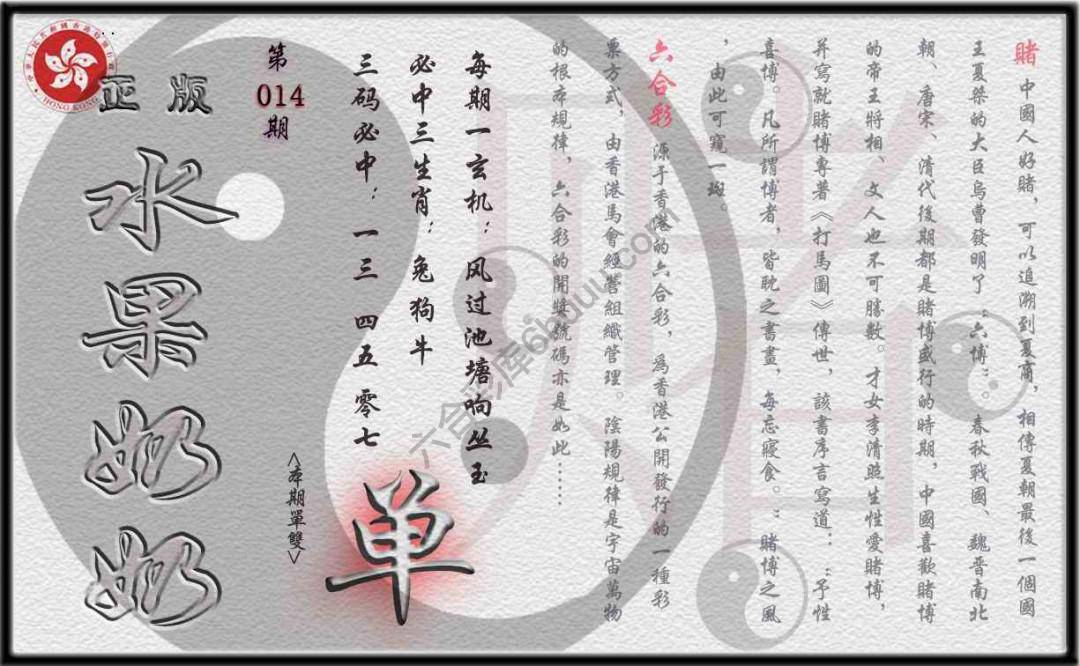 賭 中國人好賭，可以追溯到夏商，相傳夏朝最後一個國
王夏桀的大臣烏曹發明了：六博：。春秋戰國、魏晉南北
朝、唐宋、清代後期都是賭博盛行的時期，中國喜歡賭博
的帝王將相、文人也不可勝數。才女李清照生性愛賭博，
并寫就賭博專著《打馬圖》傳世，該書序言寫道：：予性
喜博。凡所謂博者，皆耽之晝晝，每忘寢食。：賭博之風
，由此可窺一斑。
六合彩 源于香港的六合彩，為香港公開發行的一種彩
票方式，由香港馬會經營組織管理。陰陽規律是宇宙萬物
的根本規律，六合彩的開獎號碼亦是如此……
每期一玄机：风过池塘响丛玉
必中三生肖：兔狗牛
三码必中：一三 四五 零七
单
<本期單雙>
第
014
期
正版
水果奶奶
HONG KONG
六合彩库66uuu.com